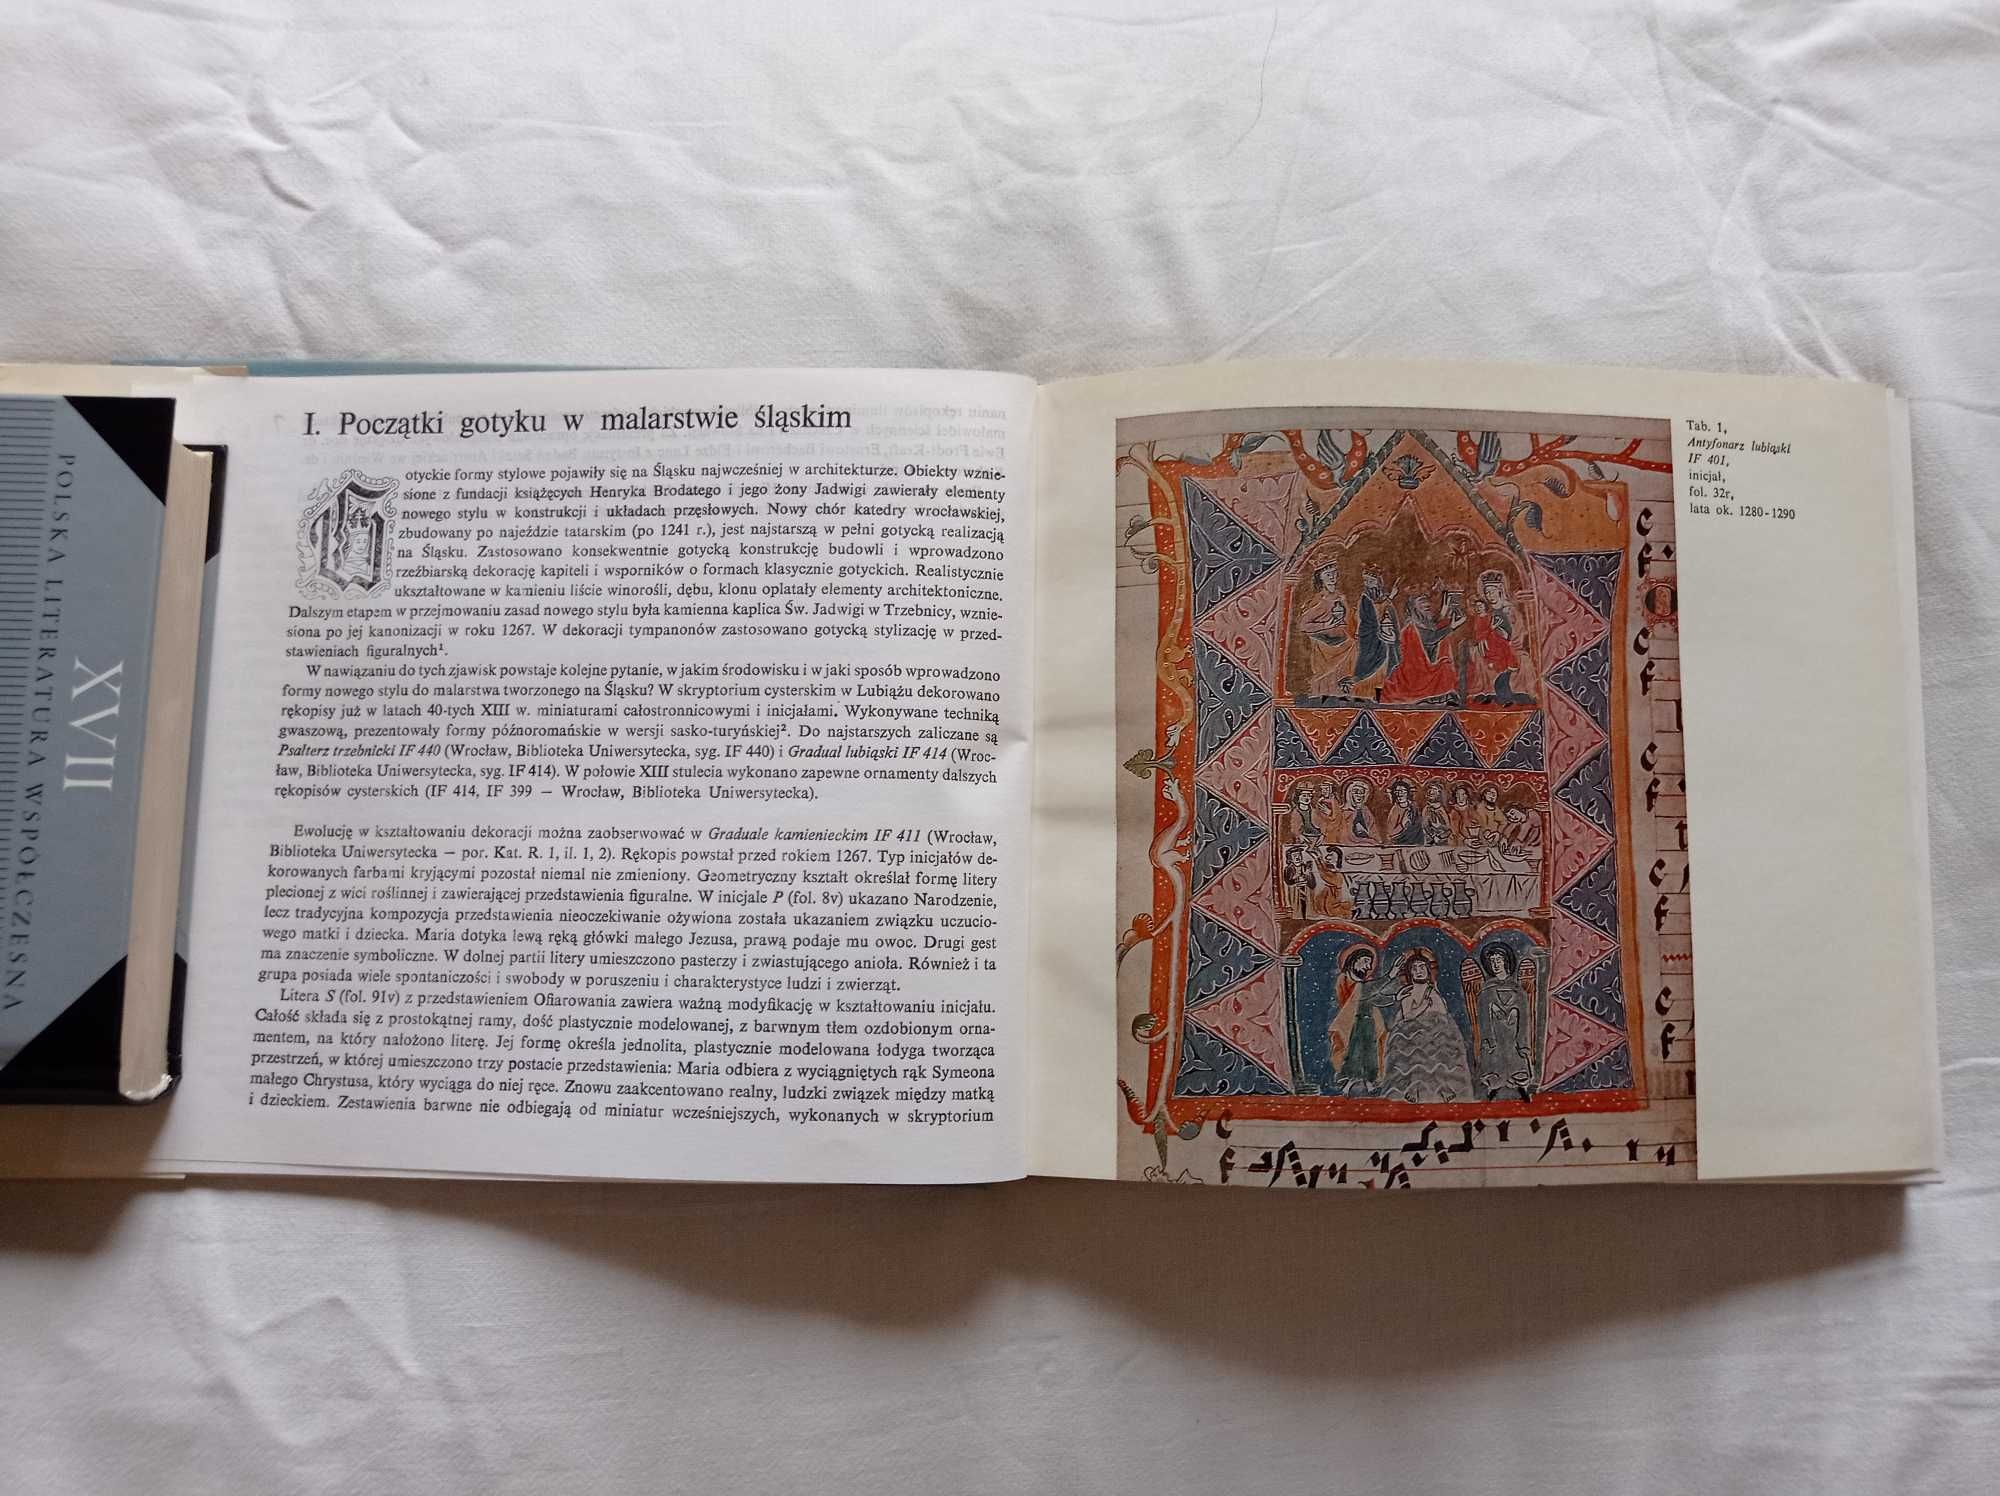 POLSKA LITERATURA WSPÓŁCZESNA
XVII
I. Początki gotyku w malarstwie śląskim
Gotyckie formy stylowe pojawiły się na Śląsku najwcześniej w architekturze. Obiekty wznie-
sione z fundacji książęcych Henryka Brodatego i jego żony Jadwigi zawierały elementy
nowego stylu w konstrukcji i układach przęsłowych. Nowy chór katedry wrocławskiej,
zbudowany po najeździe tatarskim (po 1241 r.), jest najstarszą w pełni gotycką realizacją
na Śląsku. Zastosowano konsekwentnie gotycką konstrukcję budowli i wprowadzono
rzeźbiarską dekorację kapiteli i wsporników o formach klasycznie gotyckich. Realistycznie
ukształtowane w kamieniu liście winorośli, dębu, klonu oplatały elementy architektoniczne.
Dalszym etapem w przejmowaniu zasad nowego stylu była kamienna kaplica Św. Jadwigi w Trzebnicy, wznie-
siona po jej kanonizacji w roku 1267. W dekoracji tympanonów zastosowano gotycką stylizację w przed-
stawieniach figuralnych¹.
W nawiązaniu do tych zjawisk powstaje kolejne pytanie, w jakim środowisku i w jaki sposób wprowadzono
formy nowego stylu do malarstwa tworzonego na Śląsku? W skryptorium cysterskim w Lubiążu dekorowano
rękopisy już w latach 40-tych XIII w. miniaturami całostronnicowymi i inicjałami. Wykonywane techniką
gwaszową, prezentowały formy późnoromańskie w wersji sasko-turyńskiej². Do najstarszych zaliczane są
Psałterz trzebnicki IF 440 (Wrocław, Biblioteka Uniwersytecka, syg. IF 440) i Graduał lubiąski IF 414 (Wroc-
ław, Biblioteka Uniwersytecka, syg. IF 414). W połowie XIII stulecia wykonano zapewne ornamenty dalszych
rękopisów cysterskich (IF 414, IF 399 — Wrocław, Biblioteka Uniwersytecka).
Ewolucję w kształtowaniu dekoracji można zaobserwować w Graduale kamienieckim IF 411 (Wrocław,
Biblioteka Uniwersytecka — por. Kat. R. 1, il. 1, 2). Rękopis powstał przed rokiem 1267. Typ inicjałów de-
korowanych farbami kryjącymi pozostał niemal nie zmieniony. Geometryczny kształt określał formę litery
plecionej z wici roślinnej i zawierającej przedstawienia figuralne. W inicjale P (fol. 8v) ukazano Narodzenie,
lecz tradycyjna kompozycja przedstawienia nieoczekiwanie ożywiona została ukazaniem związku uczucio-
wego matki i dziecka. Maria dotyka lewą ręką główki małego Jezusa, prawą podaje mu owoc. Drugi gest
ma znaczenie symboliczne. W dolnej partii litery umieszczono pasterzy i zwiastującego anioła. Również i ta
grupa posiada wiele spontaniczości i swobody w poruszeniu i charakterystyce ludzi i zwierząt.
Litera S (fol. 91v) z przedstawieniem Ofiarowania zawiera ważną modyfikację w kształtowaniu inicjału.
Całość składa się z prostokątnej ramy, dość plastycznie modelowanej, z barwnym tłem ozdobionym orna-
mentem, na który nałożono literę. Jej formę określa jednolita, plastycznie modelowana łodyga tworząca
przestrzeń, w której umieszczono trzy postacie przedstawienia: Maria odbiera z wyciągniętych rąk Symeona
małego Chrystusa, który wyciąga do niej ręce. Znowu zaakcentowano realny, ludzki związek między matką
i dzieckiem. Zestawienia barwne nie odbiegają od miniatur wcześniejszych, wykonanych w skryptorium
Tab. 1,
Antyfonarz lubiąski
IF 401,
inicjał,
fol. 32r,
lata ok. 1280-1290